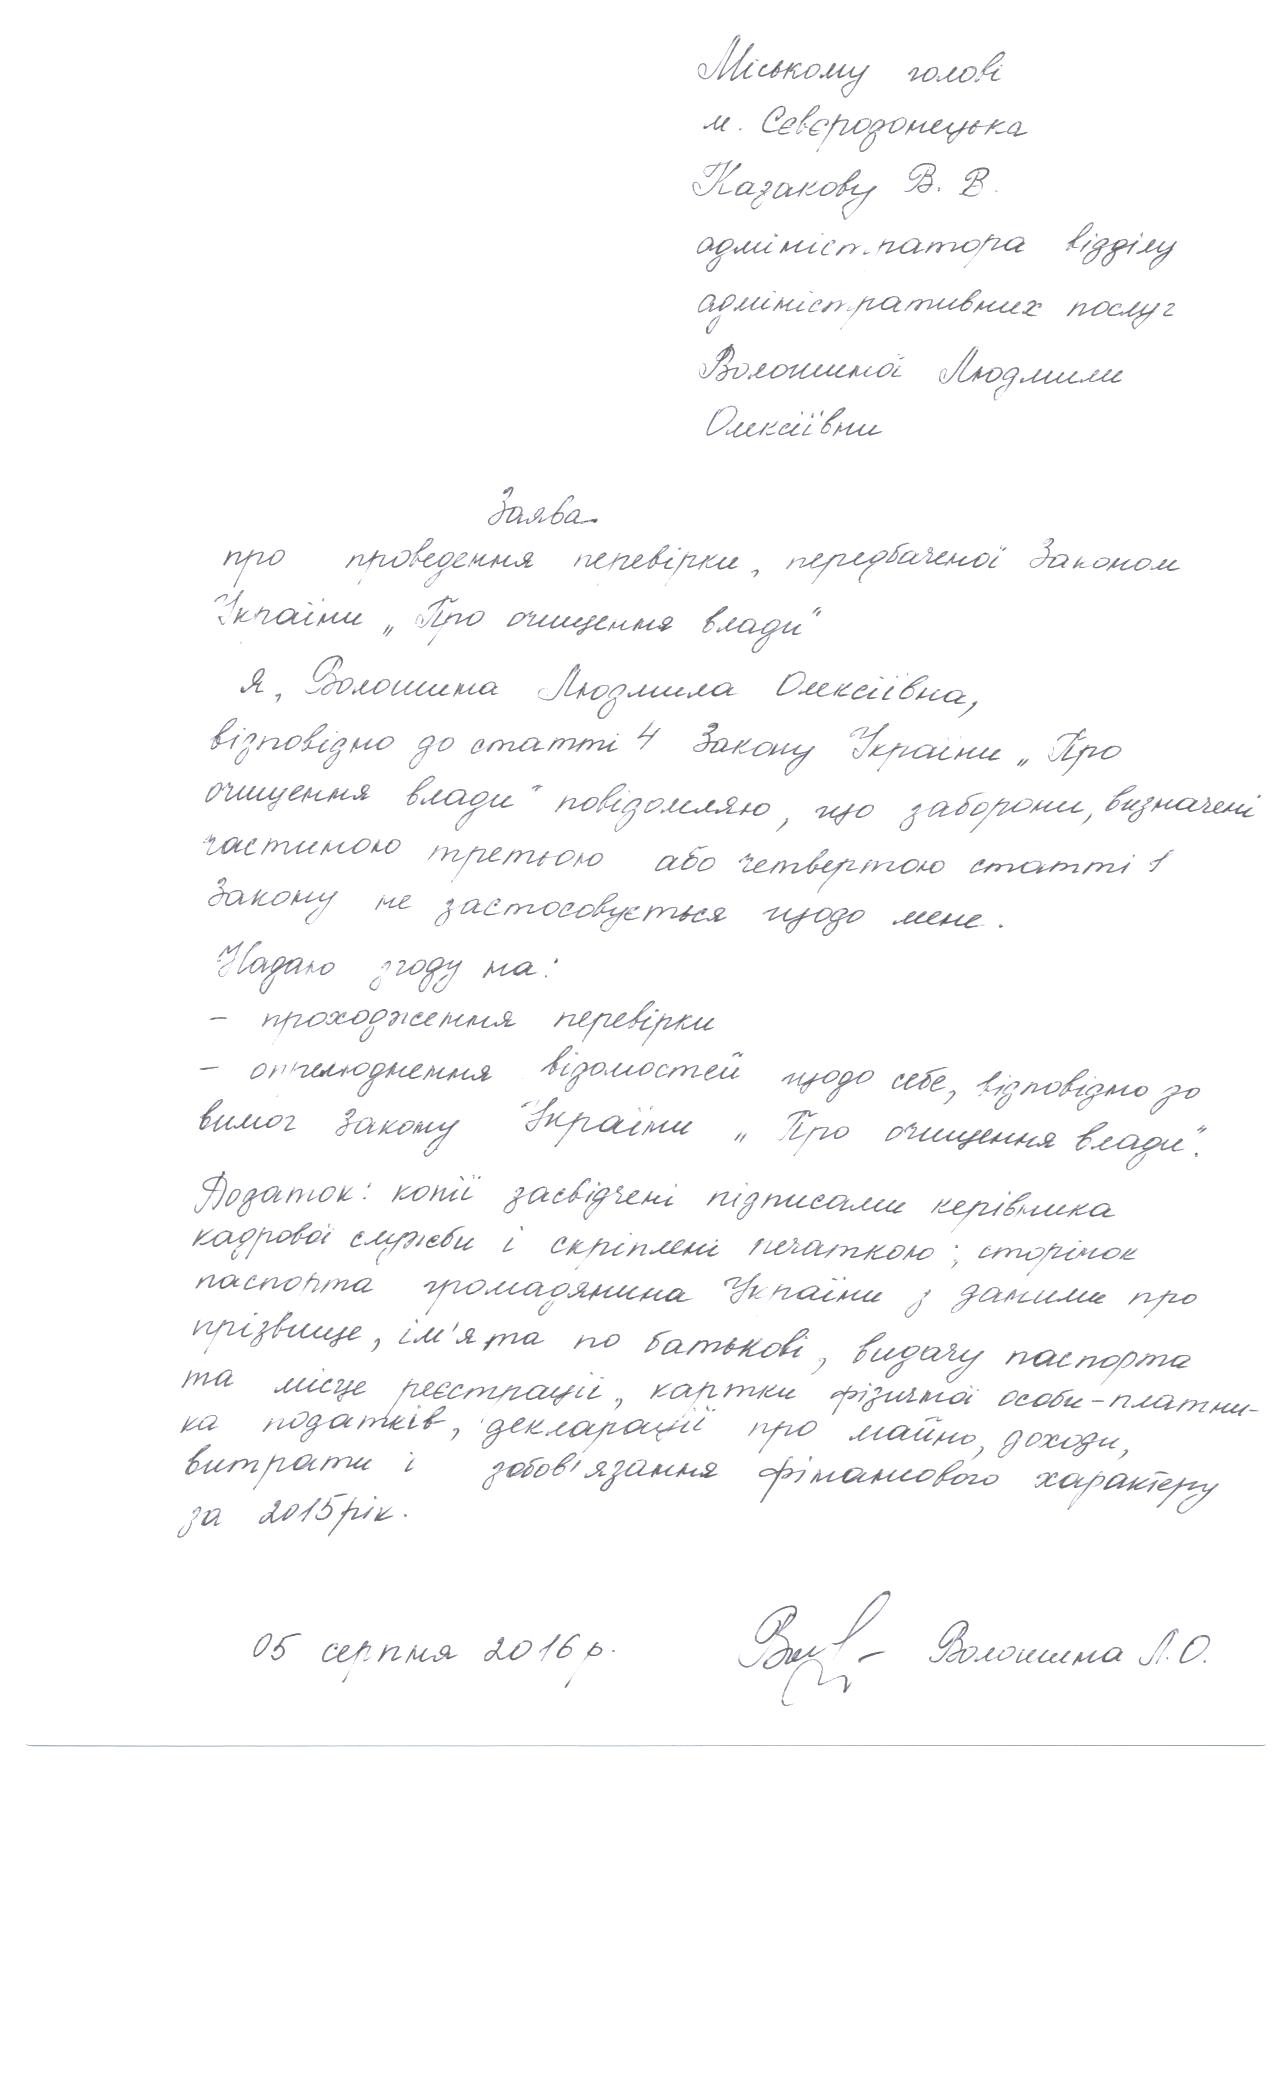 Міському голові
м. Сєвєродонецька
Казакову В. В.
адміністратора відділу
адміністративних послуг
Волошиної Людмили
Олексіївни
Заява
про проведення перевірки, передбаченої Законом
України „Про очищення влади"
Я, Волошина Людмила Олексіївна,
відповідно до статті 4 Закону України „Про
очищення влади" повідомляю, що заборони, визначені
частиною третьою або четвертою статті 1
Закону не застосовується щодо мене.
Надаю згоду на:
- проходження перевірки
- оприлюднення відомостей щодо себе, відповідно до
вимог Закону України „Про очищення влади".
Додаток: копії засвідчені підписами керівника
кадрової служби і скріплені печаткою: сторінок
паспорта громадянина України з даними про
прізвище, ім'я та по батькові, видачу паспорта
та місце реєстрації, картки фізичної особи-платни-
ка податків, декларації про майно, доходи,
витрати і зобов'язання фінансового характеру
за 2015 рік.
05 серпня 2016 р. Волошина Л.О.